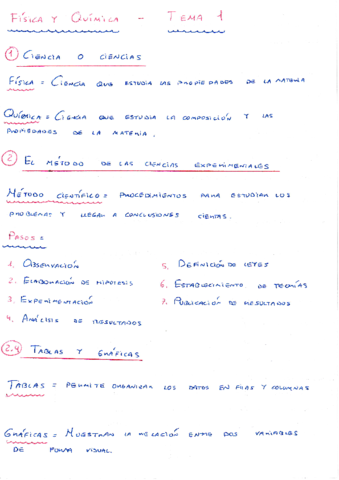 FÍSICA Y QUÍMICA - TEMA 1
1 CIENCIA O CIENCIAS
FÍSICA = CIENCIA QUE ESTUDIA LAS PROPIEDADES DE LA MATERIA
QUÍMICA = CIENCIA QUE ESTUDIA LA COMPOSICIÓN Y LAS
PROPIEDADES DE LA MATERIA.
2. EL MÉTODO DE LAS CIENCIAS EXPERIMENTALES
MÉTODO CIENTÍFICO = PROCEDIMIENTOS PARA ESTUDIAR LOS
PROBLEMAS Y LLEGAR A CONCLUSIONES CIERTAS.
PASOS =
1. OBSERVACIÓN
2. ELABORACIÓN DE HIPÓTESIS
3. EXPERIMENTACIÓN
4. ANÁLISIS DE RESULTADOS
5. DEFINICIÓN DE LEYES
6. ESTABLECIMIENTO DE TEORÍAS
7. PUBLICACIÓN DE RESULTADOS
2.4 TABLAS Y GRÁFICAS
TABLAS = PERMITE ORGANIZAR LOS DATOS EN FILAS Y COLUMNAS
GRÁFICAS = MUESTRAN LA RELACIÓN ENTRE DOS VARIABLES
DE FORMA VISUAL.